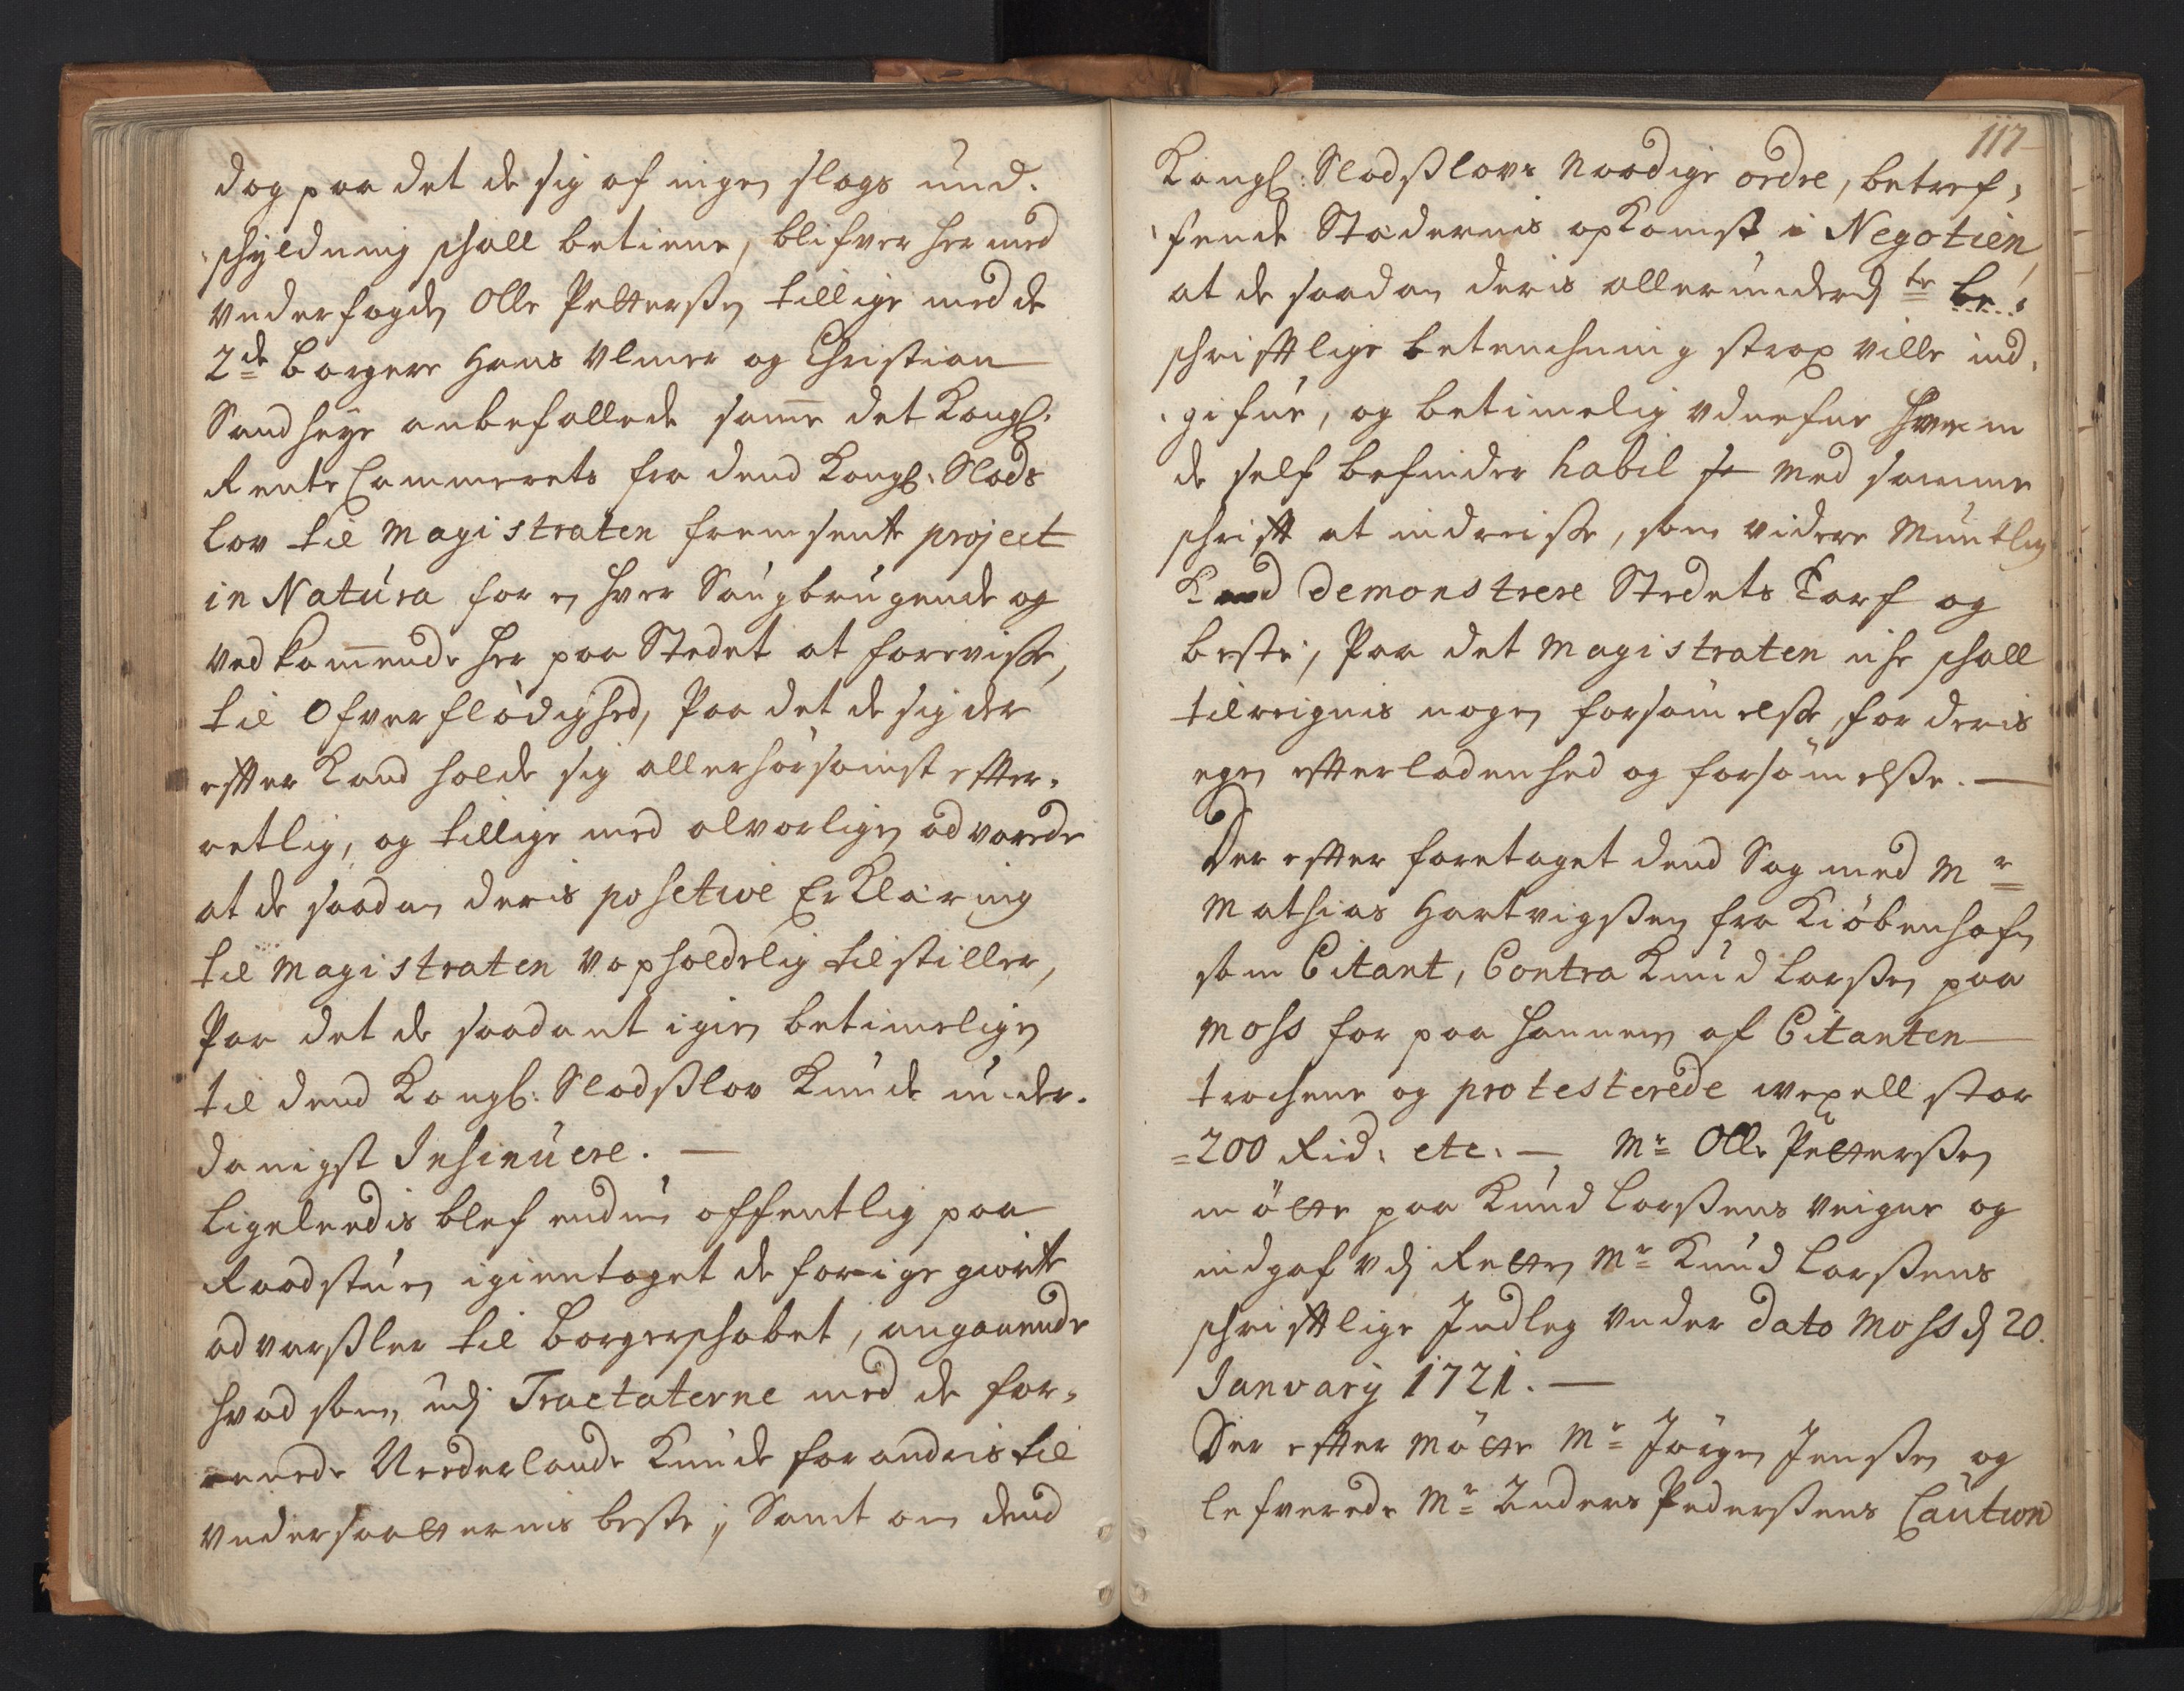 dog paa det de sig af ingen slags und¬
skyldning skall betiene, blifver her med
Underfogden Olle Pettersen tillige med de
2de Borgere Hans Ulmer og Christian
Sandhøye anbefallede samme det Kongl:
Rente Cammerets fra dend Kongl: Slods
lov til Magistraten fremsente project
in Natura for en hver Saugbrugende og
vedkommende her paa Stedet at forevisse,
til Ofverflødighed, Paa det de sig der
effter Kand holde sig allerhørsomst effter¬
retlig, og tillige med alvorligen advarede
at de saadan deris posetive Erklæring
til Magistraten Uopholdelig tilstiller,
Paa det de saadant igien betimeligen
til dend Kongl: Slodsslov Kunde under¬
danigst Insinuere. —
Ligeleedis blef endnu offentlig paa
Raadstuen igientaget de forige giorte
advarsler til Borgerskabet, angaaende
hvad som udj Tractaterne med de for¬
eenede Neederlande Kunde forandris til
Undersaatternis beste; Samt om dend
117
Kongl: Slodsslovs Naadige ordre, betref¬
fende Stædernis opKomst i Negotien,
at de saadan deris allerunderd:te be¬
skrifftlige betenchning strax ville ind¬
gifve, og betimelig udnefne hvem
de self befinder habil med samme
skrifft at indreisse, som videre Muntlig
Kand demonstrere Stedets Tarf og
beste, Paa det Magistraten iche skall
tilreignis nogen forsømelsse, for deris
egen effterladenhed og forsømelsse. —
Der effter foretaget dend Sag med Mr
Mathias Hartvigssen fra Kiøbenhafn
som Citant, Contra Knud Larssen paa
Moss for paa hannem af Citanten
trochene og protesterede wexell stor
200 Rid: etc. — Mr Olle Petterssen
møtte paa Knud Larssens veigne og
indgaf udj Retten Mr Knud Larssens
skrifftlige Indleg under dato Moss d 20.
Januarij 1721. —
Der effter Møtte Mr Jørgen Jenssen og
lefverede Mr Anders Pederssens Caution